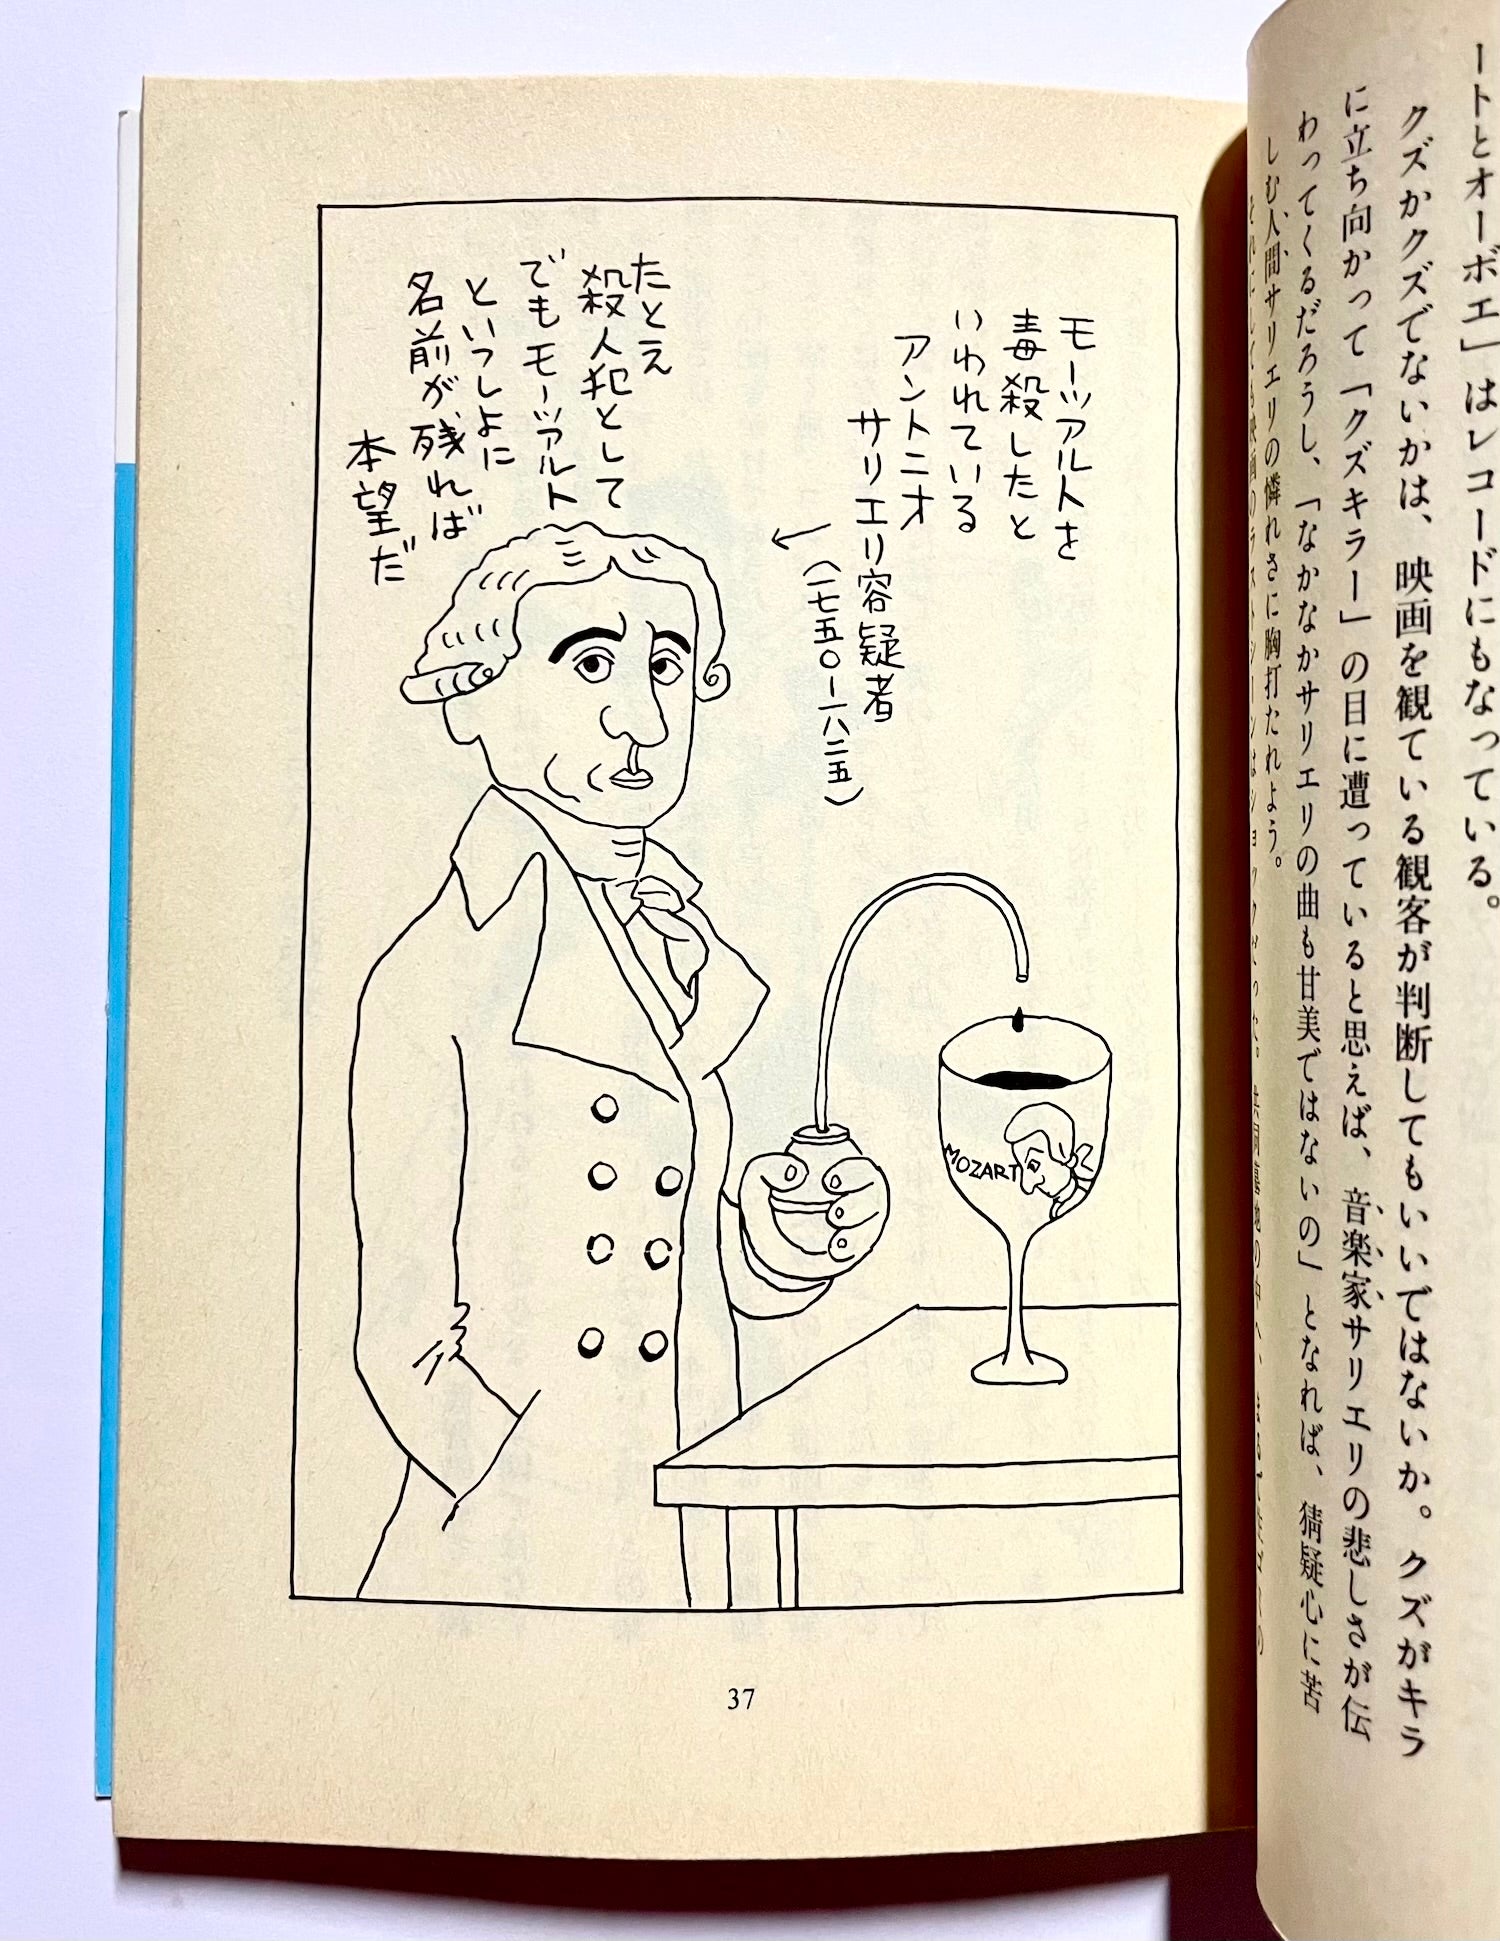 ートとオーボエ」はレコードにもなっている。
クズかクズでないかは、映画を観ている観客が判断してもいいではないか。クズがキラ
に立ち向かって「クズキラー」の目に遭っていると思えば、音楽家サリエリの悲しさが伝
わってくるだろうし、「なかなかサリエリの曲も甘美ではないの」となれば、猜疑心に苦
しむ人間サリエリの憐れさに胸打たれよう。
モーツアルトを
毒殺したと
いわれている
アントニオ
サリエリ容疑者
(一七五〇-一八二五)
たとえ
殺人犯として
でもモーツアルト
といっしょに
名前が残れば
本望だ
MOZART
37